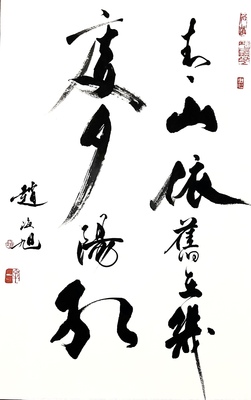 青山依舊在幾
度夕陽紅
趙汝旭